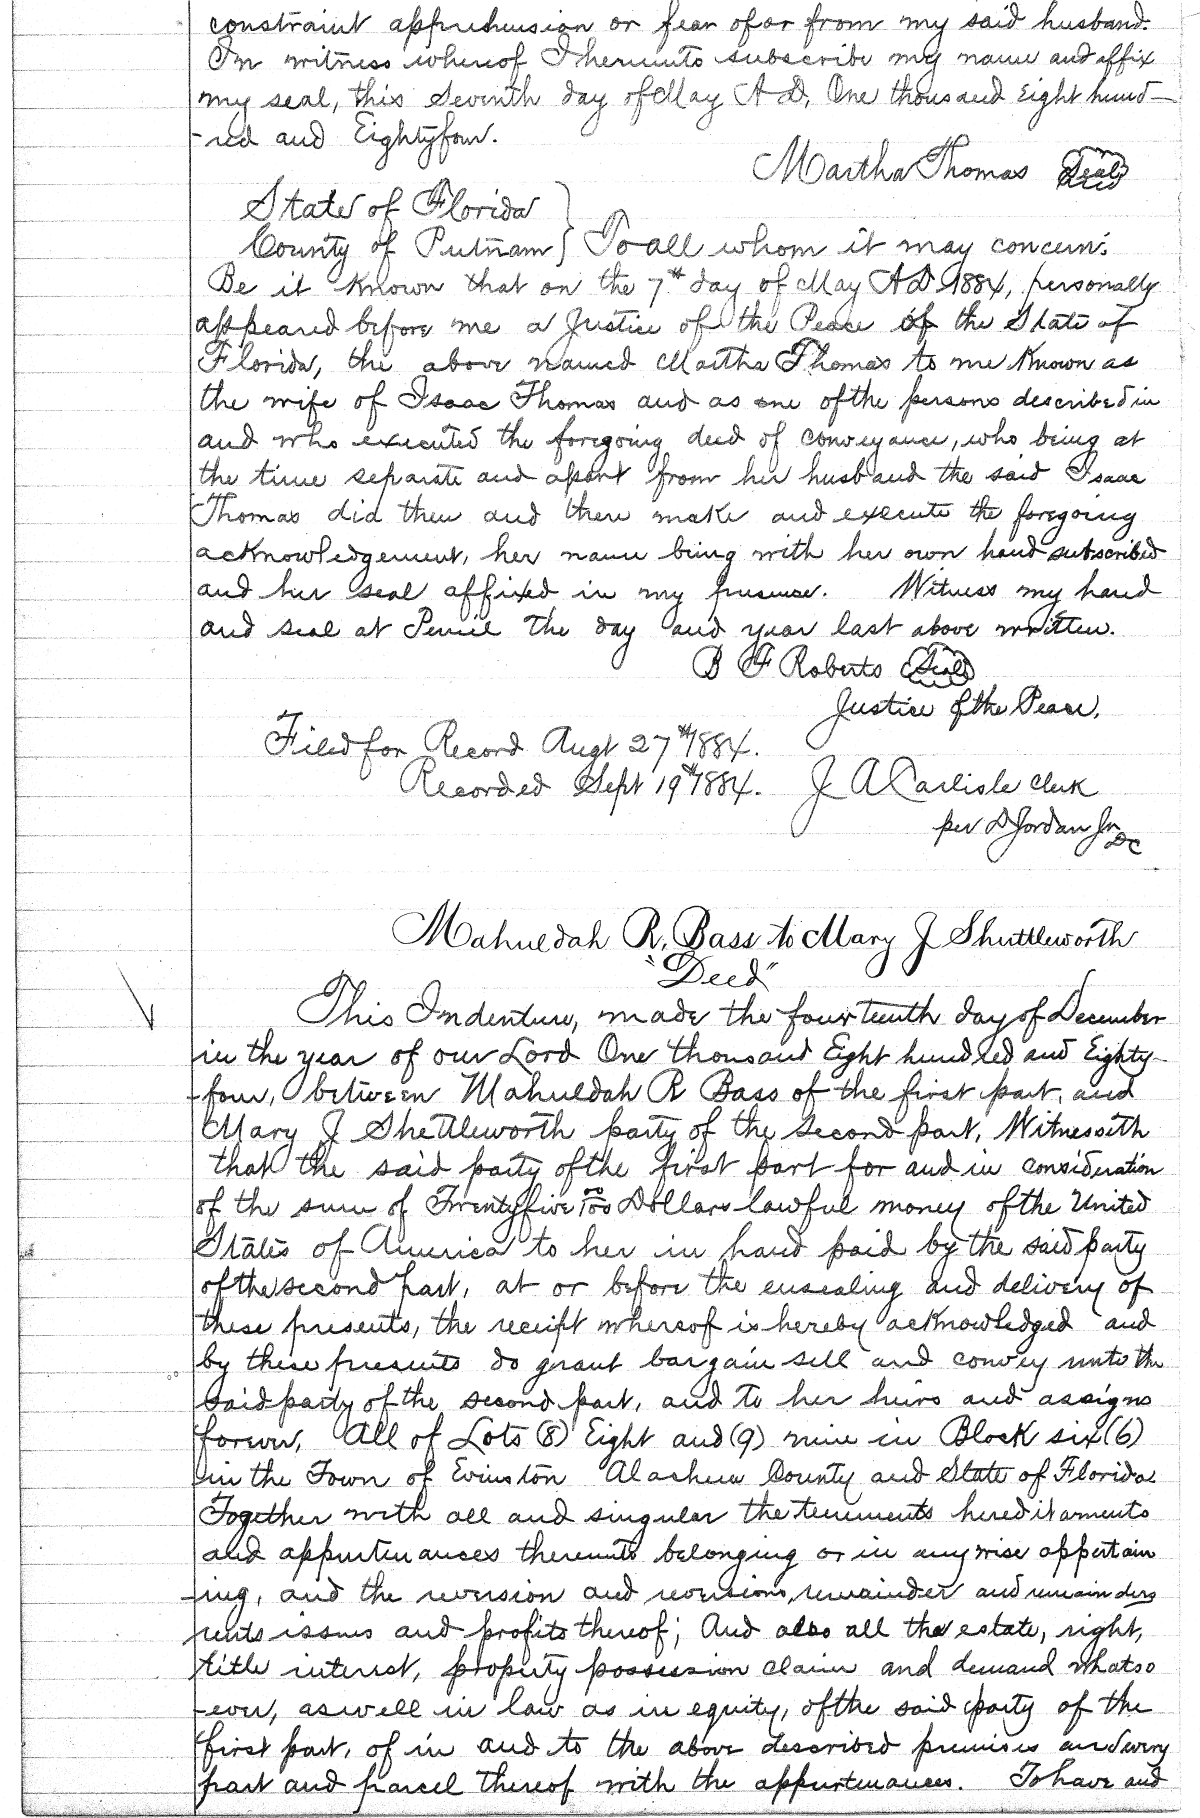 constraint apprehension or fear of or from my said husband.
In witness whereof I hereunto subscribe my name and affix
my seal, this Seventh day of May A D, One thousand Eight hund-
-red and Eightyfour.
Martha Thomas Seal
State of Florida
County of Putnam } To all whom it may concern:
Be it Known that on the 7th day of May A D 1884, personally
appeared before me a Justice of the Peace of the State of
Florida, the above named Martha Thomas to me Known as
the wife of Isaac Thomas and as one of the persons described in
and who executed the foregoing deed of conveyance, who being at
the time separate and apart from her husband the said Isaac
Thomas did then and there make and execute the foregoing
acknowledgement, her name being with her own hand subscribed
and her seal affixed in my presence. Witness my hand
and seal at Peniel the day and year last above written.
B F Roberts Seal
Justice of the Peace,
Filed for Record Augt 27th 1884.
Recorded Sept 19th 1884. J A Carlisle Clerk
per D Jordan Jr
DC
Mahuldah R. Bass to Mary J Shuttleworth
"Deed"
This Indenture, made the fourteenth day of December
in the year of our Lord One thousand Eight hundred and Eighty-
-four, between Mahuldah R Bass of the first part, and
Mary J Shettleworth party of the second part, Witnesseth
that the said party of the first part for and in consideration
of the sum of Twentyfive 00/100 Dollars lawful money of the United
States of America to her in hand paid by the said party
of the second part, at or before the ensealing and delivery of
these presents, the receipt whereof is hereby acknowledged and
by these presents do grant bargain sell and convey unto the
said party of the second part, and to her heirs and assigns
forever, All of Lots (8) Eight and (9) nine in Block six (6)
in the Town of Evinston Alachua County and State of Florida
Together with all and singular the tenements hereditaments
and appurtenances thereunto belonging or in anywise appertain
-ing, and the reversion and reversions, remainder and remainders
rents issues and profits thereof; And also all the estate, right,
title interest, property possession claim and demand whatso
-ever, as well in law as in equity, of the said party of the
first part, of in and to the above described premises and every
part and parcel thereof with the appurtenances. To have and